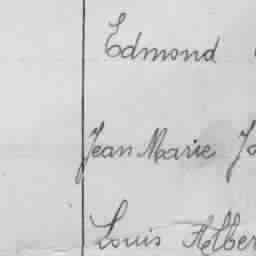 Edmond
Jean Marie Jo
Louis Alber